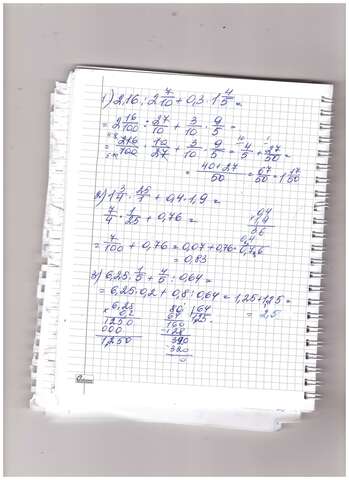 1) 2,16 : 2 7/10 + 0,3 · 1 4/5 =
= 2 16/100 : 27/10 + 3/10 · 9/5 =
= 216/100 · 10/27 + 3/10 · 9/5 = 4/5 + 27/50 =
= (40+27)/50 = 67/50 = 1 17/50
2) 1 3/4 : 25/1 + 0,4 · 1,9 =
7/4 · 1/25 + 0,76 =
= 7/100 + 0,76 = 0,07 + 0,76
= 0,83
0,4
× 1,9
36
0,4
0,76
3) 6,25 · 1/5 + 4/5 : 0,64 =
= 6,25 · 0,2 + 0,8 : 0,64 = 1,25 + 1,25 =
= 2,5
6,25
× 0,2
1250
000
1,250
80 | 64
64 1,25
160
-128
320
-320
0